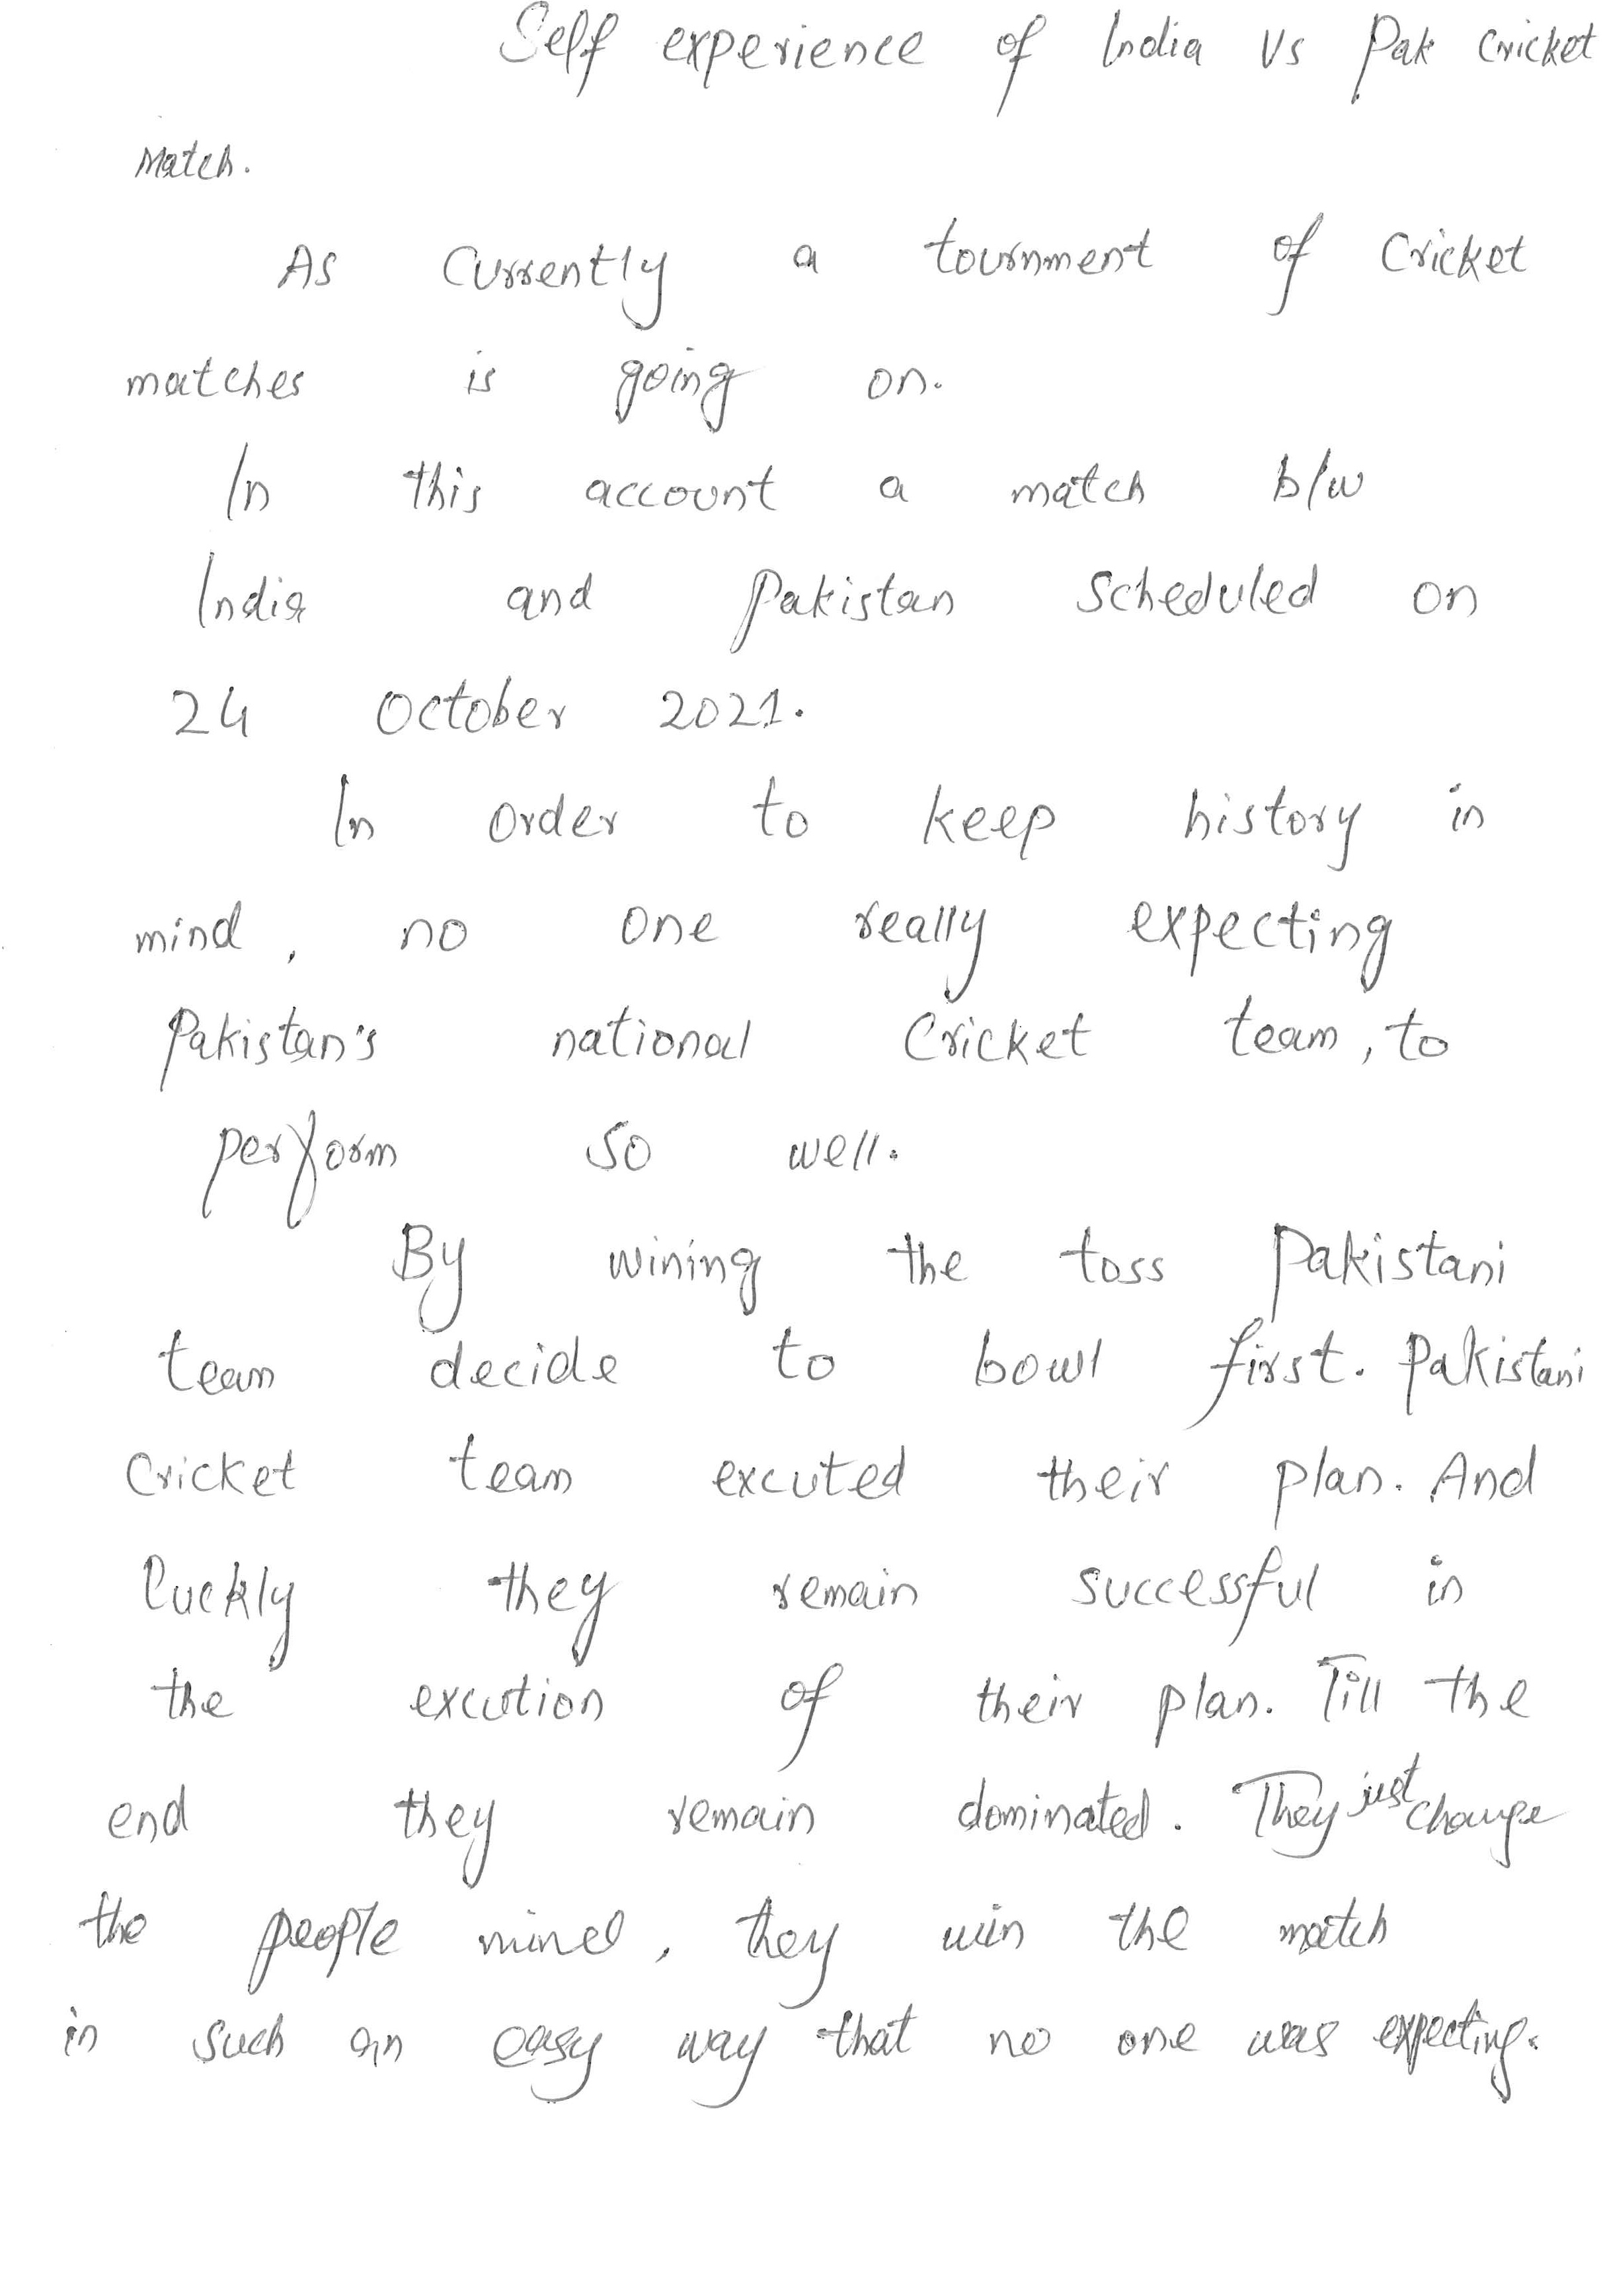 Self experience of India Vs Pak Cricket
Match.
As Currently a tournment of Cricket
matches is going on.
In this account a match b/w
India and Pakistan Scheduled on
24 October 2021.
In order to keep history in
mind, no one really expecting
Pakistan's national Cricket team, to
perform So well.
By wining the toss Pakistani
team decide to bowl first. Pakistani
Cricket team excuted their plan. And
luckly they remain successful in
the excution of their plan. Till the
end they remain dominated. They just change
the people mind, they win the match
in such an easy way that no one was expecting.